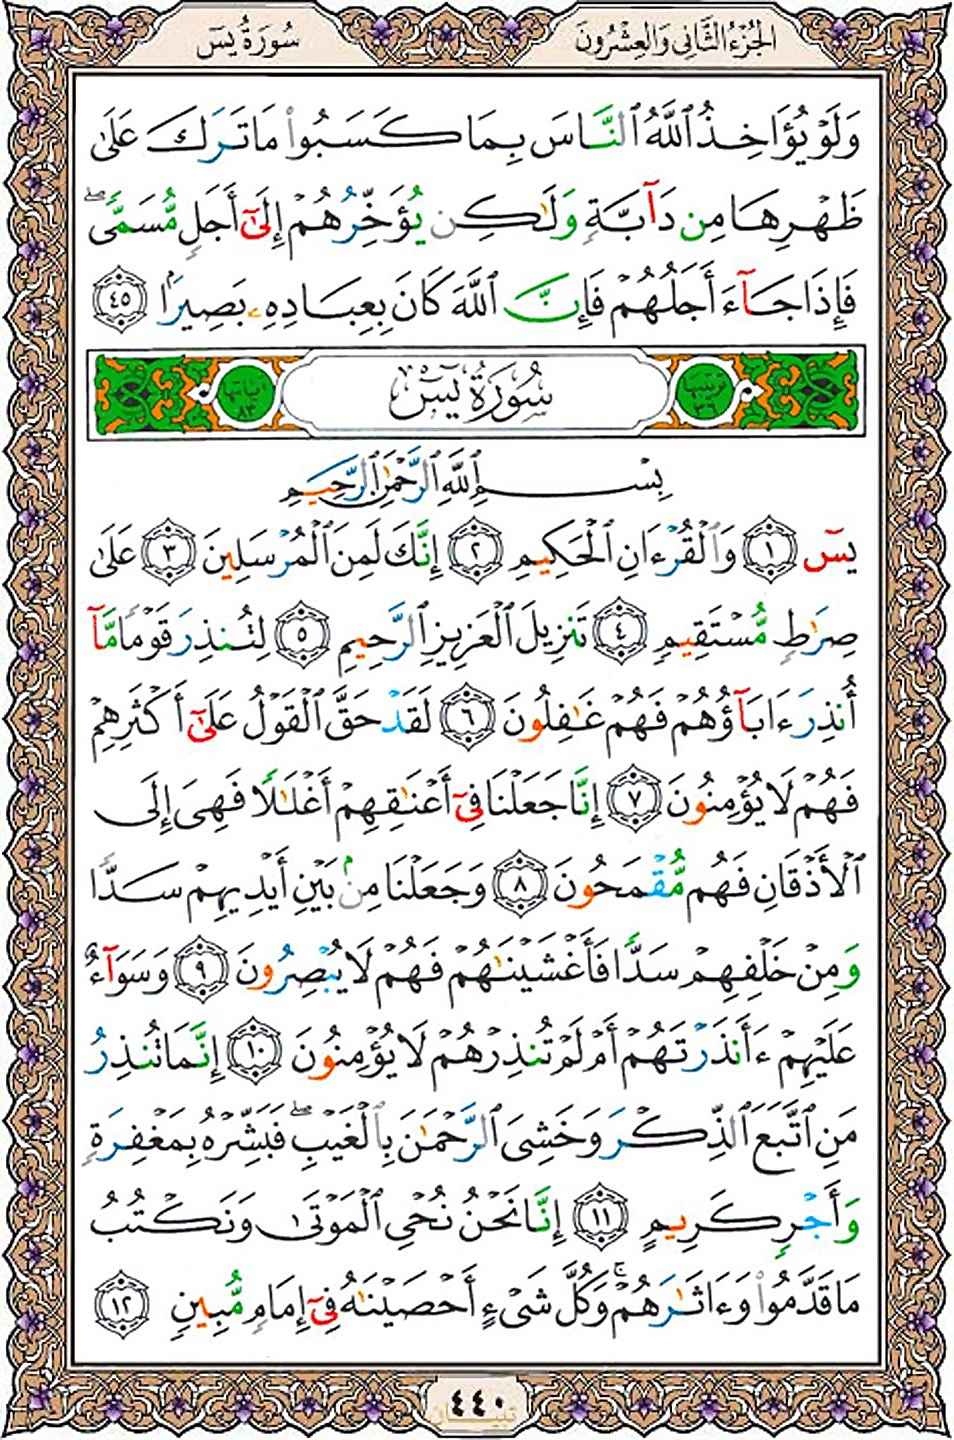 الجُزْءُ الثَّانِي وَالعِشْرُونَ
سُورَةُ يسٓ
وَلَوْ يُؤَاخِذُ ٱللَّهُ ٱلنَّاسَ بِمَا كَسَبُوا۟ مَا تَرَكَ عَلَىٰ
ظَهْرِهَا مِن دَآبَّةٍ وَلَـٰكِن يُؤَخِّرُهُمْ إِلَىٰٓ أَجَلٍ مُّسَمًّى ۖ
فَإِذَا جَآءَ أَجَلُهُمْ فَإِنَّ ٱللَّهَ كَانَ بِعِبَادِهِۦ بَصِيرًۢا ٤٥
ترتيبها ٣٦
سُورَةُ يسٓ
آياتها ٨٣
بِسْمِ ٱللَّهِ ٱلرَّحْمَـٰنِ ٱلرَّحِيمِ
يسٓ ١ وَٱلْقُرْءَانِ ٱلْحَكِيمِ ٢ إِنَّكَ لَمِنَ ٱلْمُرْسَلِينَ ٣ عَلَىٰ
صِرَٰطٍ مُّسْتَقِيمٍ ٤ تَنزِيلَ ٱلْعَزِيزِ ٱلرَّحِيمِ ٥ لِتُنذِرَ قَوْمًا مَّآ
أُنذِرَ ءَابَآؤُهُمْ فَهُمْ غَـٰفِلُونَ ٦ لَقَدْ حَقَّ ٱلْقَوْلُ عَلَىٰٓ أَكْثَرِهِمْ
فَهُمْ لَا يُؤْمِنُونَ ٧ إِنَّا جَعَلْنَا فِىٓ أَعْنَـٰقِهِمْ أَغْلَـٰلًا فَهِىَ إِلَى
ٱلْأَذْقَانِ فَهُم مُّقْمَحُونَ ٨ وَجَعَلْنَا مِنۢ بَيْنِ أَيْدِيهِمْ سَدًّا
وَمِنْ خَلْفِهِمْ سَدًّا فَأَغْشَيْنَـٰهُمْ فَهُمْ لَا يُبْصِرُونَ ٩ وَسَوَآءٌ
عَلَيْهِمْ ءَأَنذَرْتَهُمْ أَمْ لَمْ تُنذِرْهُمْ لَا يُؤْمِنُونَ ١٠ إِنَّمَا تُنذِرُ
مَنِ ٱتَّبَعَ ٱلذِّكْرَ وَخَشِىَ ٱلرَّحْمَـٰنَ بِٱلْغَيْبِ ۖ فَبَشِّرْهُ بِمَغْفِرَةٍ
وَأَجْرٍ كَرِيمٍ ١١ إِنَّا نَحْنُ نُحْىِ ٱلْمَوْتَىٰ وَنَكْتُبُ
مَا قَدَّمُوا۟ وَءَاثَـٰرَهُمْ ۚ وَكُلَّ شَىْءٍ أَحْصَيْنَـٰهُ فِىٓ إِمَامٍ مُّبِينٍ ١٢
٤٤٠
تبيان